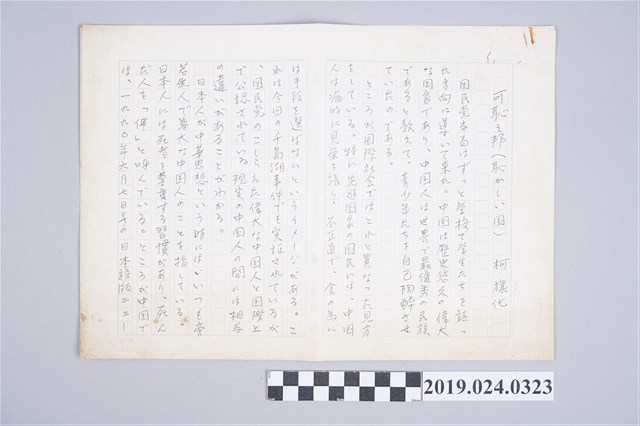 可恥之邦(恥かしい国) 柯旗化
国民党当局はずっと学校で学生たちを誤っ
た方向に導いて来た。中国は歴史悠久の偉大
な国家であり、中国人は世界で最優秀の民族
であると教えて、青少年たちを自己陶酔させ
ていたのである。
ところが国際社会ではこれと異なった見方
をしている。特に先進国家の国民には、中国
人は病的に見栄を張り、不正直で、金の為に
は手段を選ばないというイメージがある。こ
れは今回の千島湖事件でも実証されているが
、国民党のこしらえた偉大な中国人と国際上
で公認されている現実の中国人の間には相当
の違いがあることがわかる。
日本人が中華思想という時には、いつも傍
若無人で尊大な中国人のことを指している。
日本人には死者を尊重する習慣があり、死ん
だ人を「佛」と呼んでいる。ところが中国で
は、一九九〇年六月七日号の日本語版ニュー
2019.024.0323